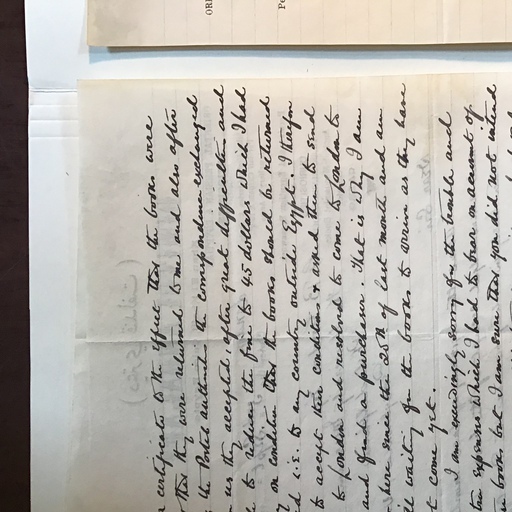 certificate to the effect that the books were
that they were returned to me and also after
the Postal authorities the correspondence exchanged
us they accepted, after great difficulties and
to reduce the fine to 45 dollars which I had
on condition that the books should be returned
i.e. to any country outside Egypt. I therefore
to accept their conditions & asked them to send
to London and resolved to come to London to
and find a purchaser. That is why I am
here since the 25th of last month and am
waiting for the books to arrive as they have
come yet.
I am exceedingly sorry for the trouble and
expenses which I had to bear on account of
books but I am sure that you did not intend
OR
Pe